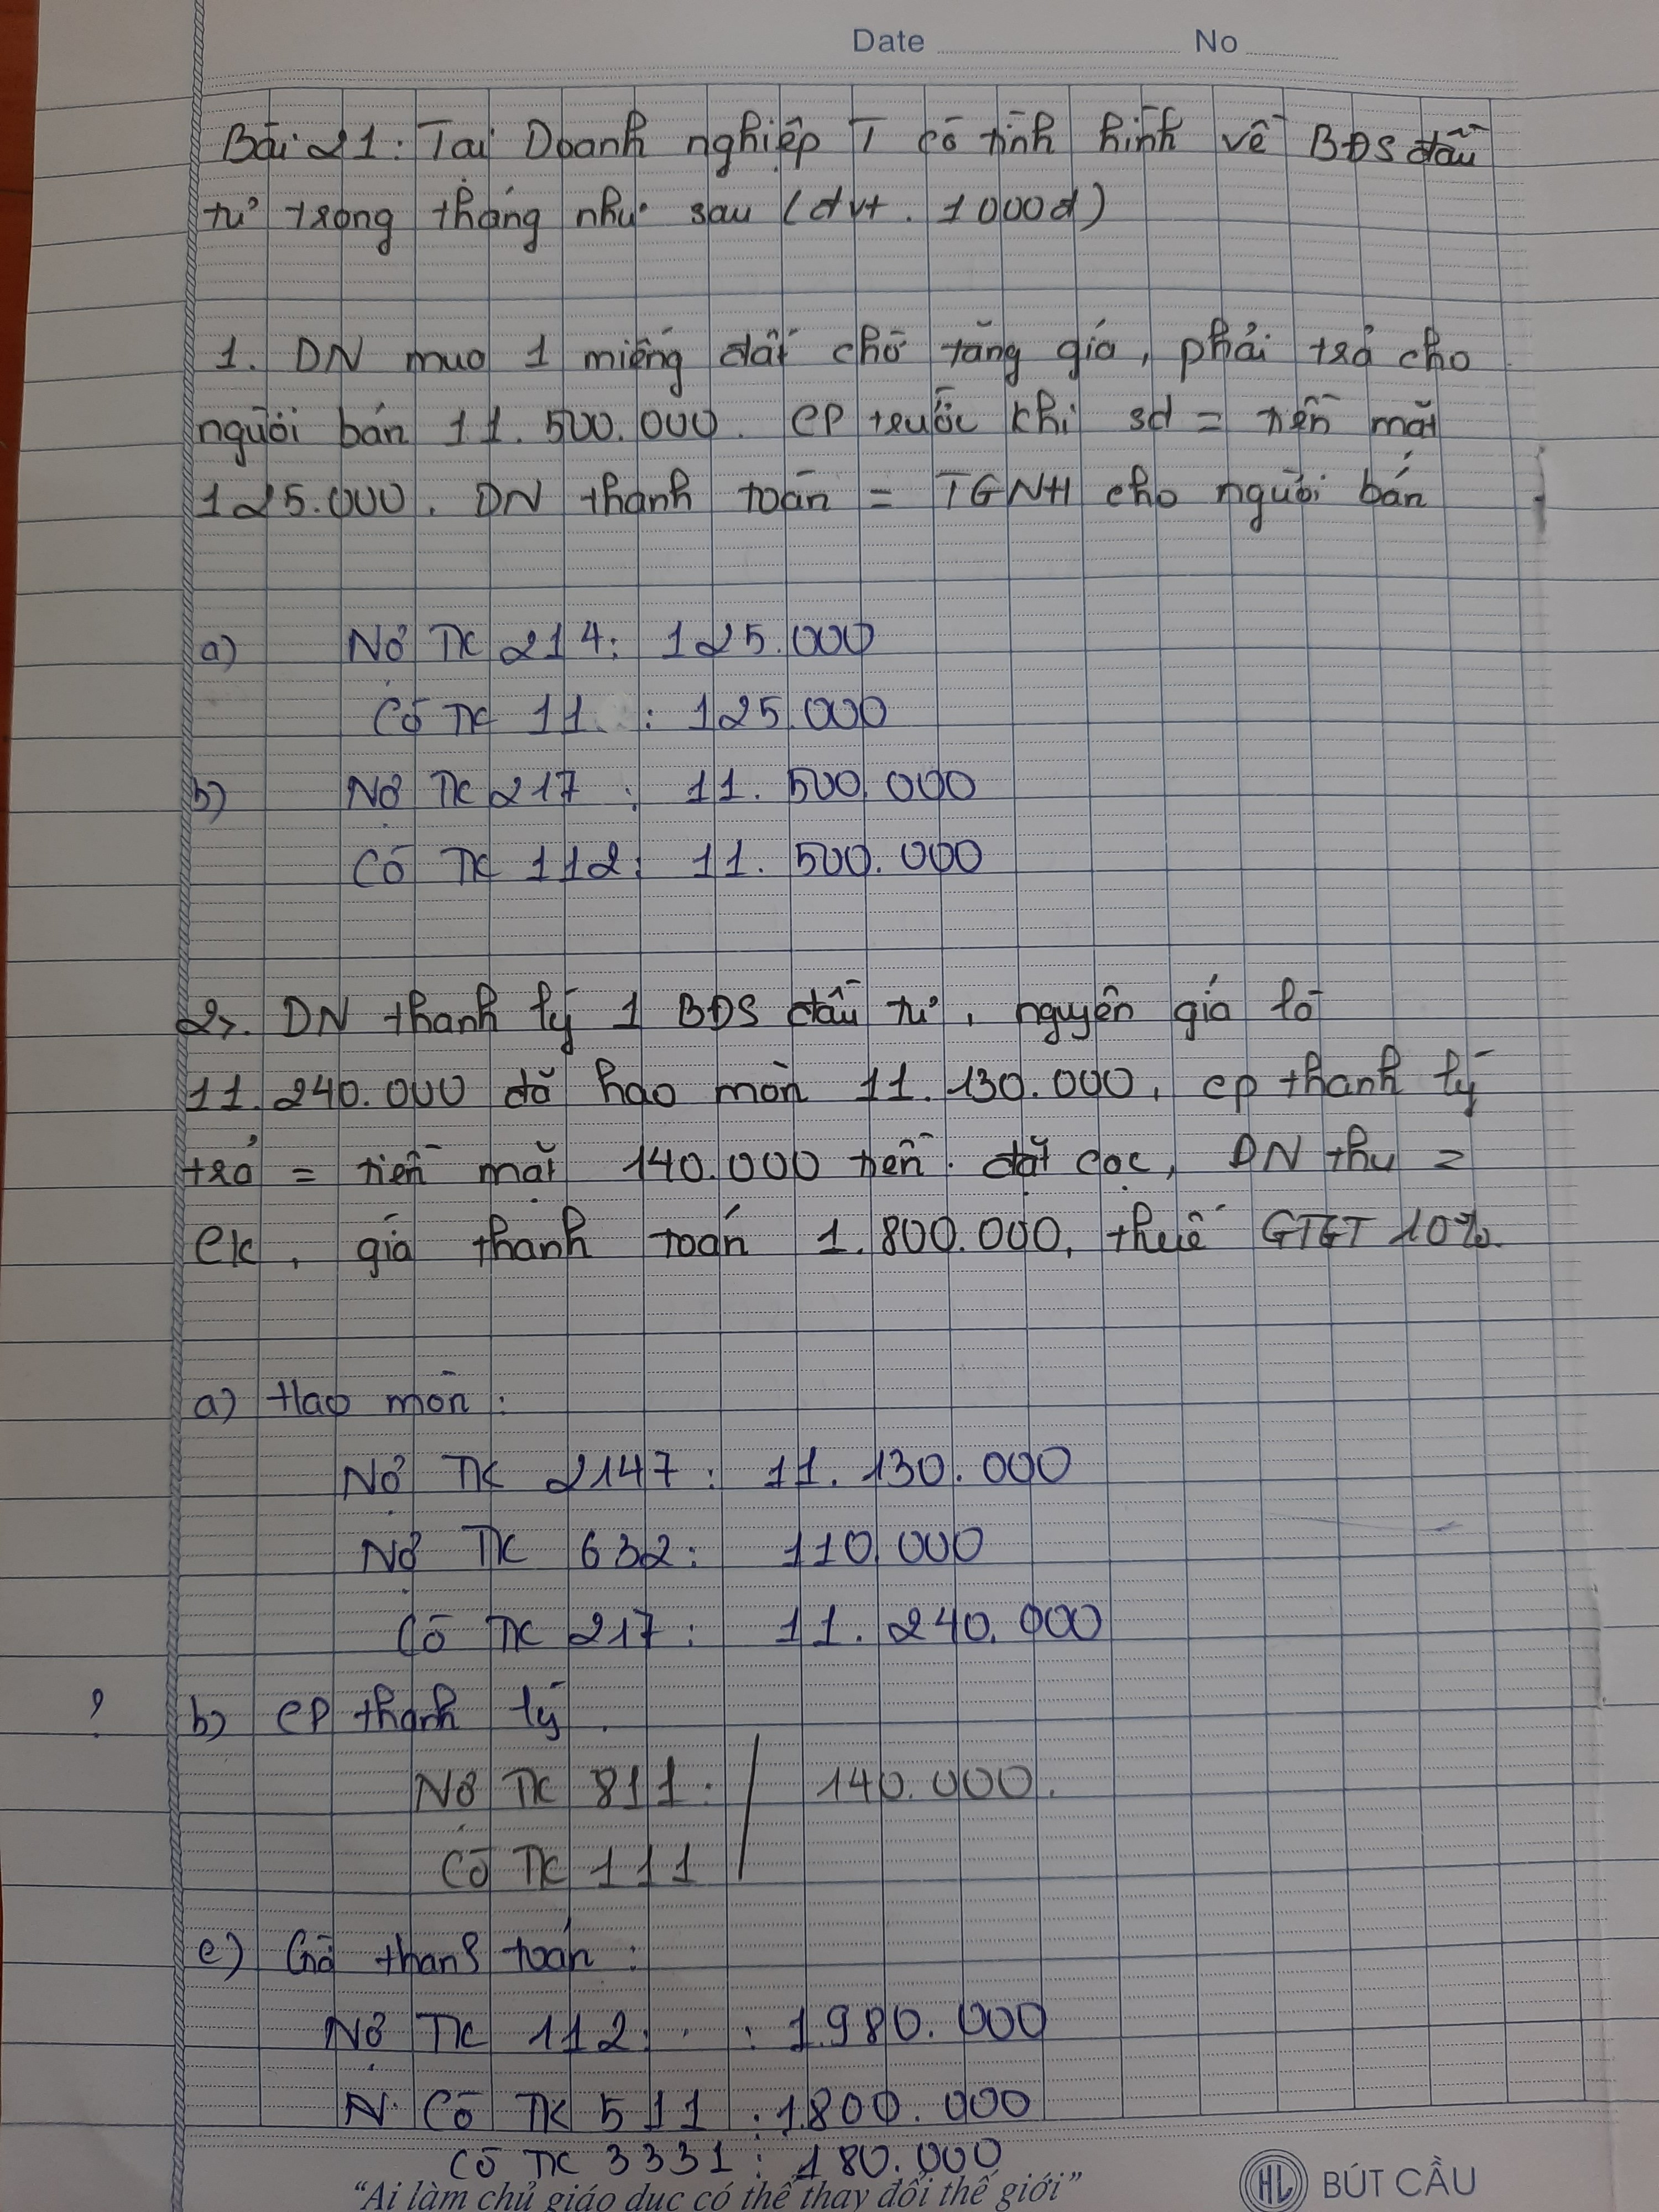 Date No
Bài 21: Tại Doanh nghiệp T có tình hình về BĐS đầu
tư trong tháng như sau (đvt. 1000đ)
1. DN mua 1 miếng đất chờ tăng giá, phải trả cho
người bán 11.500.000. CP trước khi sd = tiền mặt
125.000. DN thanh toán = TGNH cho người bán
a) Nợ TK 214: 125.000
Có TK 11 : 125.000
b) Nợ TK 217 : 11.500.000
Có TK 112: 11.500.000
2>. DN thanh lý 1 BĐS đầu tư, nguyên giá là
11.240.000 đã hao mòn 11.130.000, cp thanh lý
trả = tiền mặt 140.000 tiền đặt cọc, DN thu =
ck, giá thanh toán 1.800.000, thuế GTGT 10%.
a) Hao mòn:
Nợ TK 2147: 11.130.000
Nợ TK 632: 110.000
Có TK 217: 11.240.000
? b) CP thanh lý.
Nợ TK 811: / 140.000.
Có TK 111
c) Giá thanh toán:
Nợ TK 112: : 1.980.000
N Có TK 511 : 1.800.000
Có TK 3331: 180.000
"Ai làm chủ giáo dục có thể thay đổi thế giới"
HL BÚT CẦU